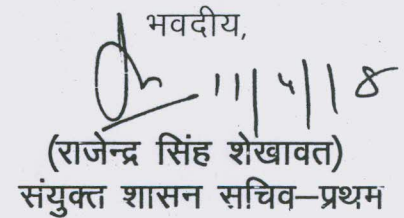 भवदीय,
11/4/18
(राजेन्द्र सिंह शेखावत)
संयुक्त शासन सचिव–प्रथम